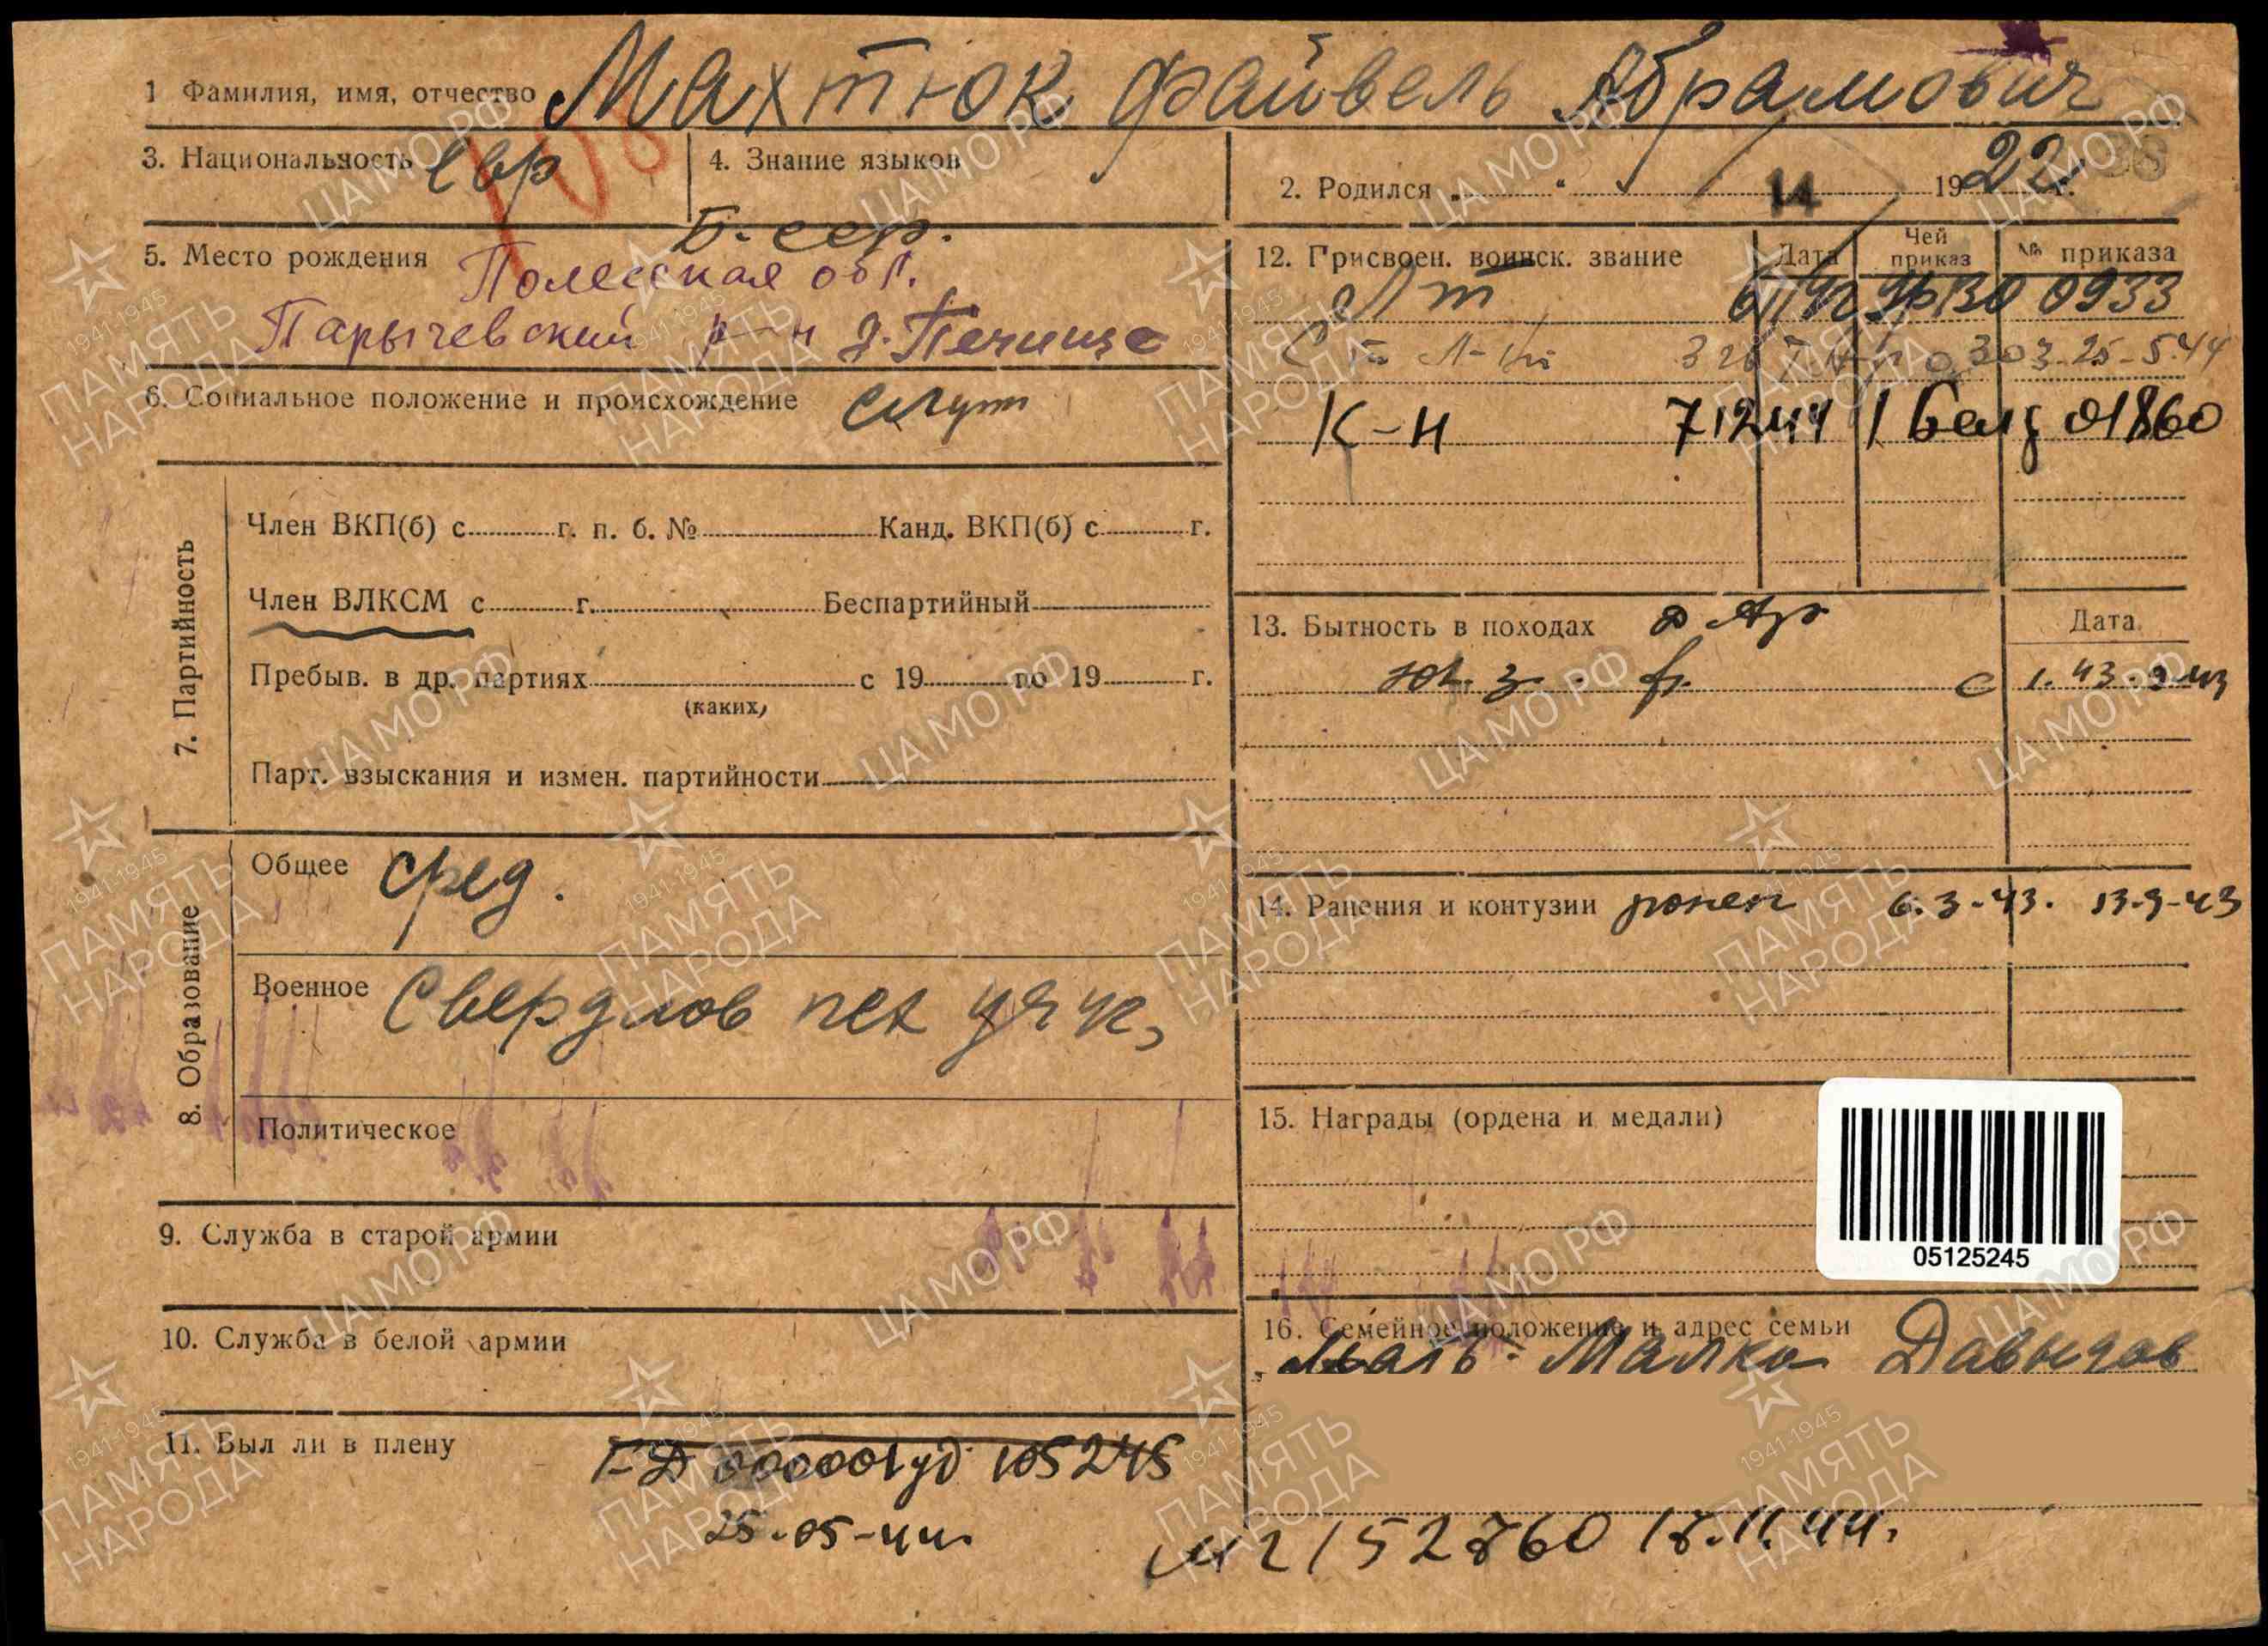 1 Фамилия, имя, отчество Махтюк Файвель Абрамович
3. Национальность евр
4. Знание языков
2. Родился 14 1922 г.
5. Место рождения Б. ССР.
Полесская обл.
Парычевский р-н д. Печище
6. Социальное положение и происхождение служ
7. Партийность
Член ВКП(б) с г. п. б. № Канд. ВКП(б) с г.
Член ВЛКСМ с г. Беспартийный
Пребыв. в др. партиях с 19 по 19 г.
(каких)
Парт. взыскания и измен. партийности
8. Образование
Общее сред.
Военное Свердлов пех уч 42
Политическое
9. Служба в старой армии
10. Служба в белой армии
11. Был ли в плену
105245
25-05-44
12. Присвоен. воинск. звание Дата Чей приказ № приказа
Лт УрВО 0933
Ст Л-нт 303 25-5-44
К-н 71244 1 Бел 01860
13. Бытность в походах Дата
Ю.З. ф. с 1.43-9.43
14. Ранения и контузии ранен 6.3-43. 13-9-43
15. Награды (ордена и медали)
05125245
16. Семейное положение и адрес семьи
Мать- Малка Давыдов
152860 18.11.44.
ЦА МО РФ
1941-1945
ПАМЯТЬ НАРОДА